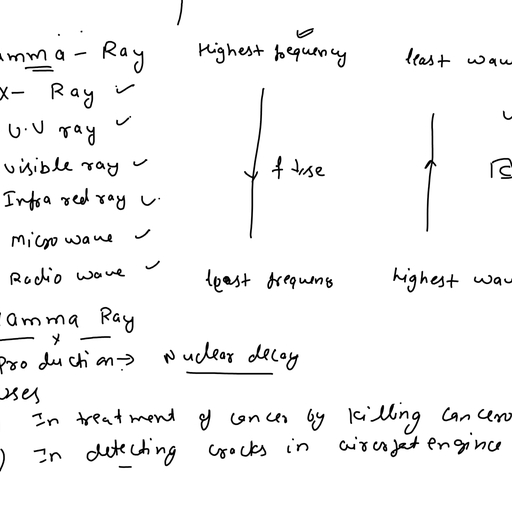 amma - Ray Highest frequency least wav
X- Ray
U.V ray
visible ray f ↓se
Infra red ray
Micro wave
Radio wave least frequency highest wav
Gamma Ray
Production → Nuclear decay
uses
In treatment of cancer by killing cancero
) In detecting cracks in aircraft engine